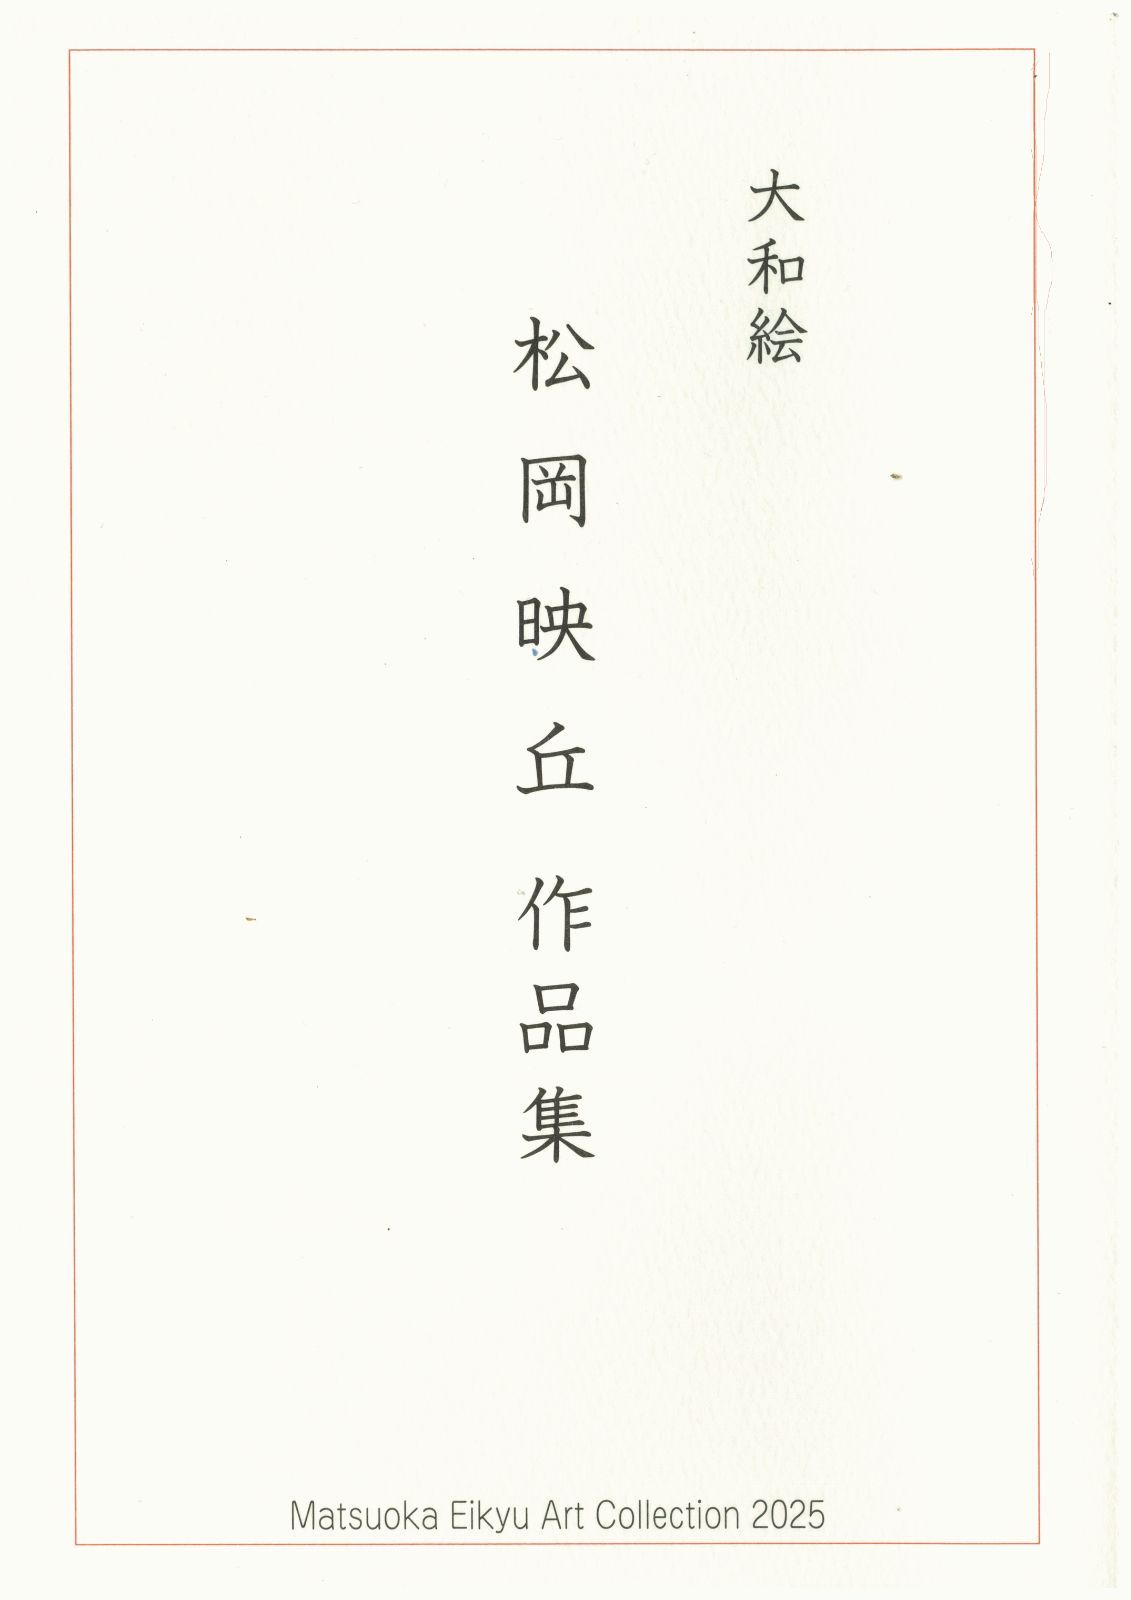 大和絵
松岡映丘作品集
Matsuoka Eikyu Art Collection 2025